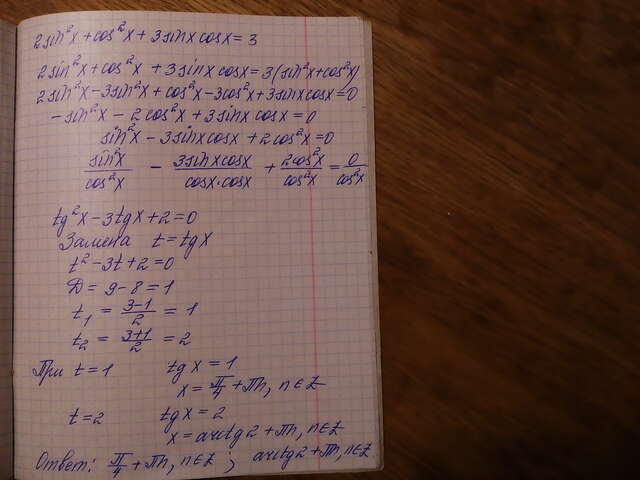 2sin²x + cos²x + 3sinx cosx = 3
2sin²x + cos²x + 3sinx cosx = 3(sin²x + cos²x)
2sin²x - 3sin²x + cos²x - 3cos²x + 3sinx cosx = 0
- sin²x - 2cos²x + 3sinx cosx = 0
sin²x - 3sinx cosx + 2cos²x = 0
sin²x/cos²x - 3sinx cosx/cosx·cosx + 2cos²x/cos²x = 0/cos²x
tg²x - 3tgx + 2 = 0
Замена t = tgx
t² - 3t + 2 = 0
Д = 9 - 8 = 1
t₁ = (3-1)/2 = 1
t₂ = (3+1)/2 = 2
При t = 1 tgx = 1
x = π/4 + πn, n∈Z
t = 2 tgx = 2
x = arctg2 + πn, n∈Z
Ответ: π/4 + πn, n∈Z ; arctg2 + πn, n∈Z